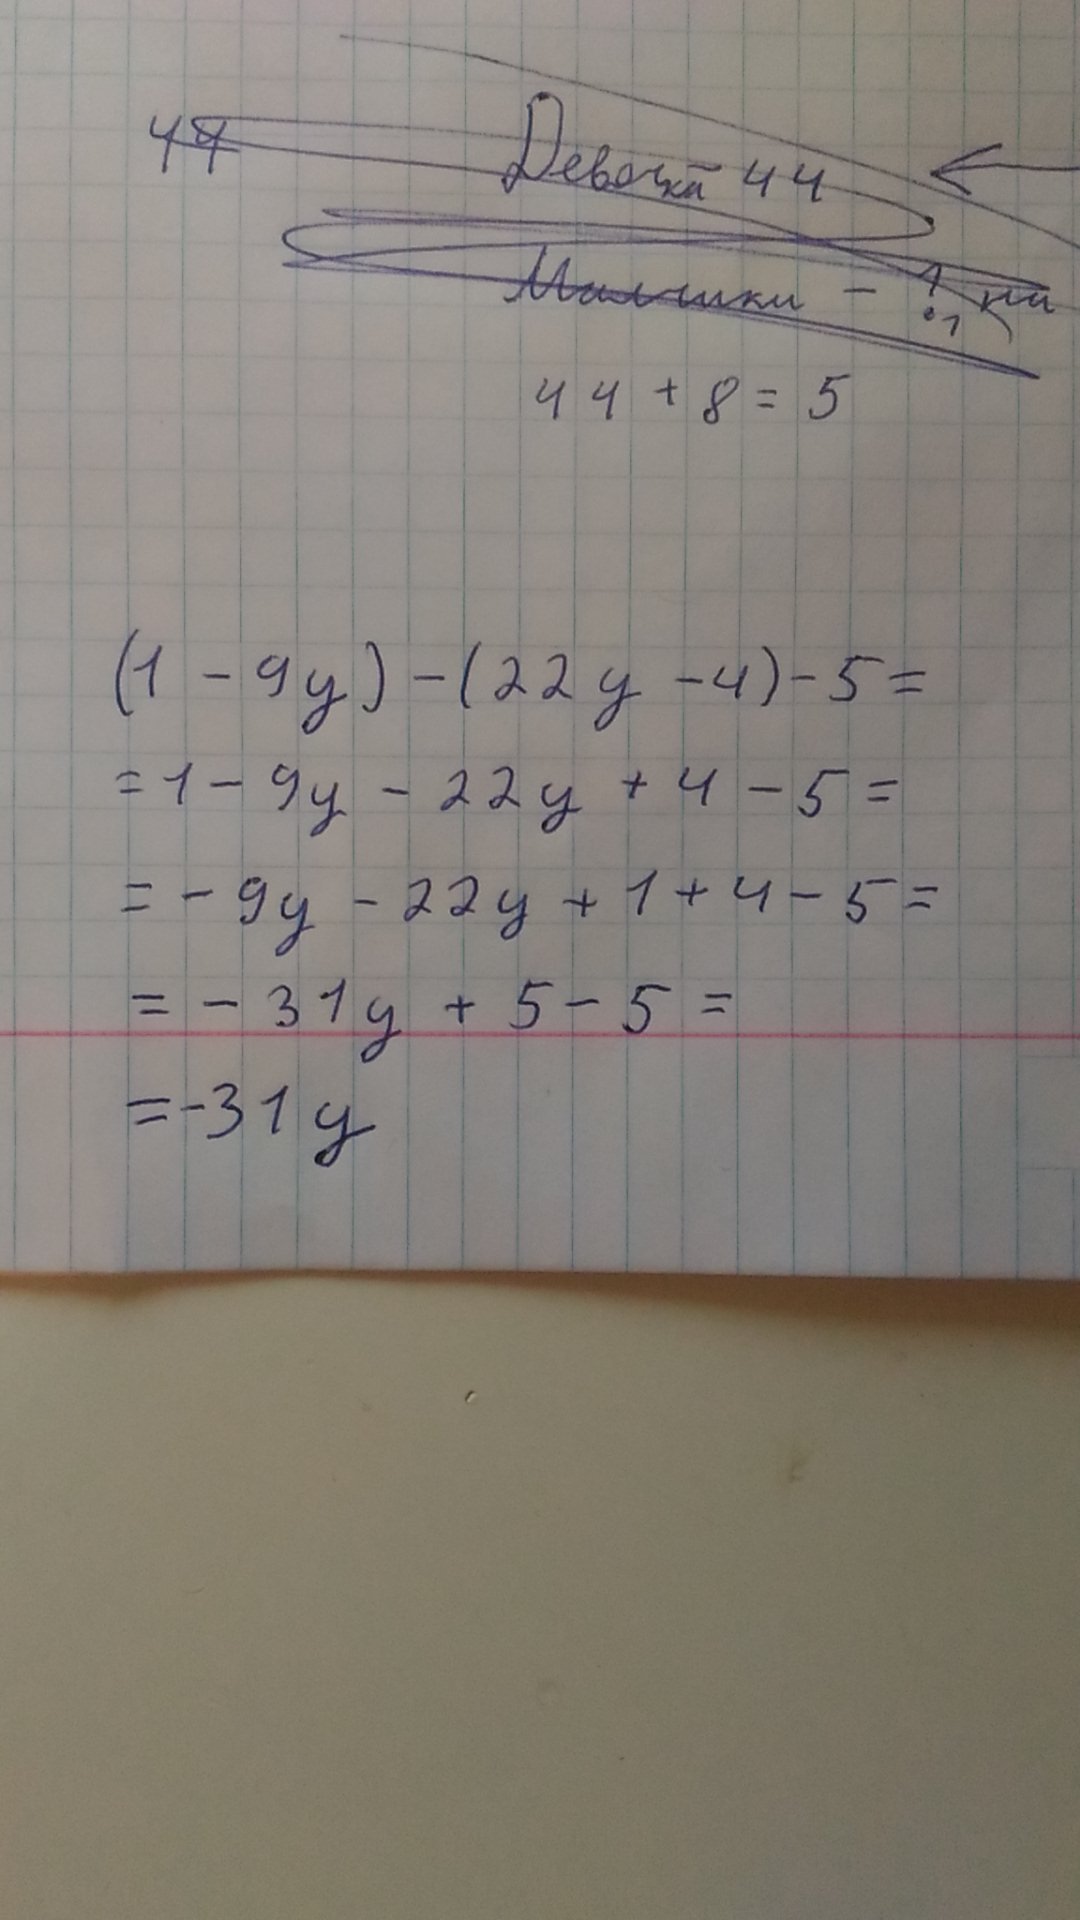 44
Девочки 44
Мальчики - ? на
44 + 8 = 5
(1 - 9y) - (22y - 4) - 5 =
= 1 - 9y - 22y + 4 - 5 =
= - 9y - 22y + 1 + 4 - 5 =
= - 31y + 5 - 5 =
= -31y